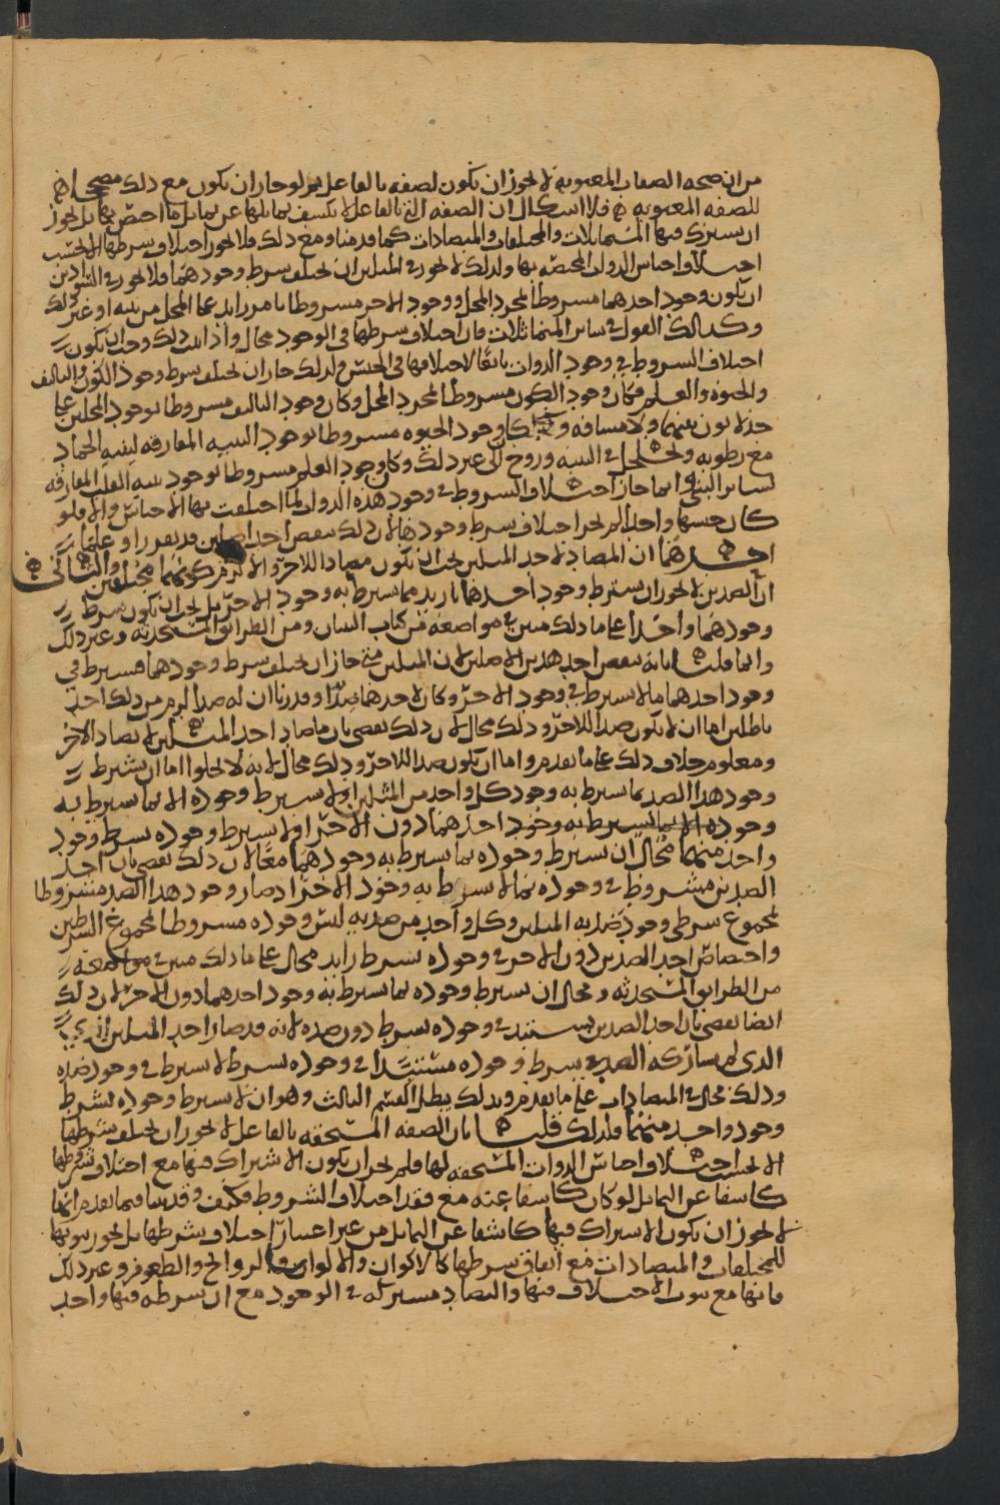 من ان صحه الصفات المعنويه لا يجوز ان تكون لصفه بالفاعل لو جاز ان يكون مع ذلك مصححا
للصفه المعنويه فلا اشكال ان الصفه التي بالفاعل لا تكشف بماثلها عن تماثل ما اختص بها بل يجوز
ان يشترك فيها المتماثلات والمختلفات والمتضادات كما قدمنا ومع ذلك فلا يجوز اختلاف شرطها الا بحسب
اختلاف اجناس الذوات المختصه بها ولذلك لا يجوز في المثلين ان يختلف شرط وجودهما فلا يجوز في السوادين
ان يكون وجود احدهما مشروطا بمجرد المحل ووجود الاخر مشروطا بامر زايد على المحل من بنيه او غير ذلك
وكذلك القول في ساير المتماثلات فان اختلاف شرطها في الوجود محال واذا ثبت ذلك وجب ان يكون
اختلاف الشروط في وجود الذوات تابعا لاختلافها في الجنس ولذلك جاز ان يختلف شرط وجود الكون والتاليف
والحيوه والعلم فكان وجود الكون مشروطا بمجرد المحل وكان وجود التاليف مشروطا بوجود المحلين على
حد لا بون بينهما ولا مسافه وكان وجود الحيوه مشروطا بوجود البنيه المفارقه لبنيه الجماد
مع رطوبه وتخلخل في البنيه وروح الى غير ذلك وكان وجود العلم مشروطا بوجود بنيه القلب المفارقه
لساير البنى وانما جاز اختلاف الشروط في وجود هذه الذوات لما اختلفت بها الاجناس والا فلو
كان جنسها واحدا لم يجز اختلاف شرط وجودها لان ذلك ينقض احد اصلين قد تقررا وعلما
احدهما ان المضاد لاحد المثلين يجب ان يكون مضادا للاخر والا لزم كونهما مختلفين والثاني
ان الضدين لا يجوز ان يشترط وجود احدهما بازيد مما يشترط به وجود الاخر بل يجب ان يكون شرط
وجودهما واحدا على ما ذلك مبين في مواضعه من كتاب البيان ومن الطرايق المستحدثه وغير ذلك
وانما قلنا بانه ينقض احد هذين الاصلين لان المثلين متى جاز ان يختلف شرط وجودهما فيشترط في
وجود احدهما ما لا يشترط في وجود الاخر وكان لاحدهما ضدا وقدرنا ان له ضدا لزم من ذلك احد
باطلين اما ان لا يكون ضدا للاخر وذلك محال لان ذلك يقضي بان ما ضاد احد المثلين لا يضاد الاخر
ومعلوم خلاف ذلك على ما تقدم واما ان يكون ضدا للاخر وذلك محال لانه لا يخلوا اما ان يشترط
وجود هذا الضد بما يشترط به وجود كل واحد من المثلين او لا يشترط وجوده الا بما يشترط به
وجود احدهما دون الاخر او لا يشترط وجوده بشرط وجود
واحد منهما محال ان يشترط وجوده بما يشترط به وجودهما معا لان ذلك يقضي بان احد
الضدين مشروط في وجوده بما لا يشترط به وجود الاخر اذ صار وجود هذا الضد مشروطا
بمجموع شرطي وجود ضديه المثلين وكل واحد من ضديه ليس وجوده مشروطا بمجموع الشرطين
واختصاص احد الضدين دون الاخر في وجوده بشرط زايد محال على ما ذلك مبين في مواضعه
من الطرايق المستحدثه ومحال ان يشترط وجوده بما يشترط به وجود احدهما دون الاخر لان ذلك
ايضا يقضي بان احد الضدين يستبد في وجوده بشرط دون ضده لانه قد صار احد المثلين
الذي لم يشاركه الضد في شرط وجوده مستبدا في وجوده بشرط لا يشترط في وجود ضده
وذلك محال في المتضادات على ما تقدم وبذلك يبطل القسم الثالث وهو ان لا يشترط وجوده بشرط
وجود واحد منهما ولذلك قلنا بان الصفه المستحقه بالفاعل لا يجوز ان يختلف شرطها
الا بحسب اختلاف اجناس الذوات المستحقه لها فلم يجز ان يكون الاشتراك فيها مع اختلاف شرطها
كاشفا عن التماثل لو كان كاشفا عنه مع فقد اختلاف الشروط فكيف وقد بينا فيما تقدم انها
لا يجوز ان يكون الاشتراك فيها كاشفا عن التماثل من غير اعتبار اختلاف شرطها بل يجوز ثبوتها
للمختلفات والمتضادات مع اتفاق شرطها كالاكوان والالوان والروايح والطعوم وغير ذلك
فانها مع ثبوت الاختلاف فيها والتضاد مشتركه في الوجود مع ان شرطه فيها واحد